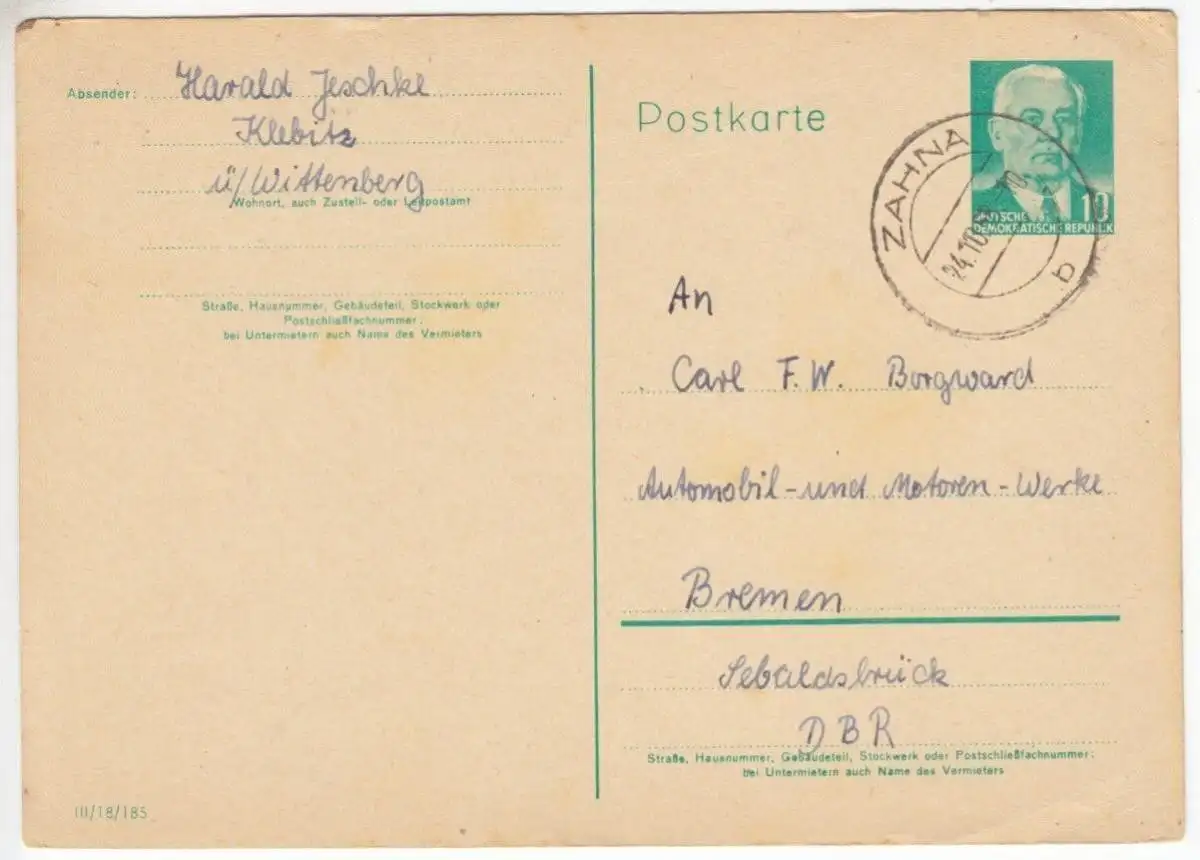 Absender: Harald Jeschke
Klebitz
ü/Wittenberg
Wohnort, auch Zustell- oder Leitpostamt
Straße, Hausnummer, Gebäudeteil, Stockwerk oder
Postschließfachnummer;
bei Untermietern auch Name des Vermieters
III/18/185
Postkarte
10
DEUTSCHE
DEMOKRATISCHE REPUBLIK
ZAHNA
24.10.
b
An
Carl F. W. Borgward
Automobil-und Motoren-Werke
Bremen
Sebaldsbrück
DBR
Straße, Hausnummer, Gebäudeteil, Stockwerk oder Postschließfachnummer;
bei Untermietern auch Name des Vermieters